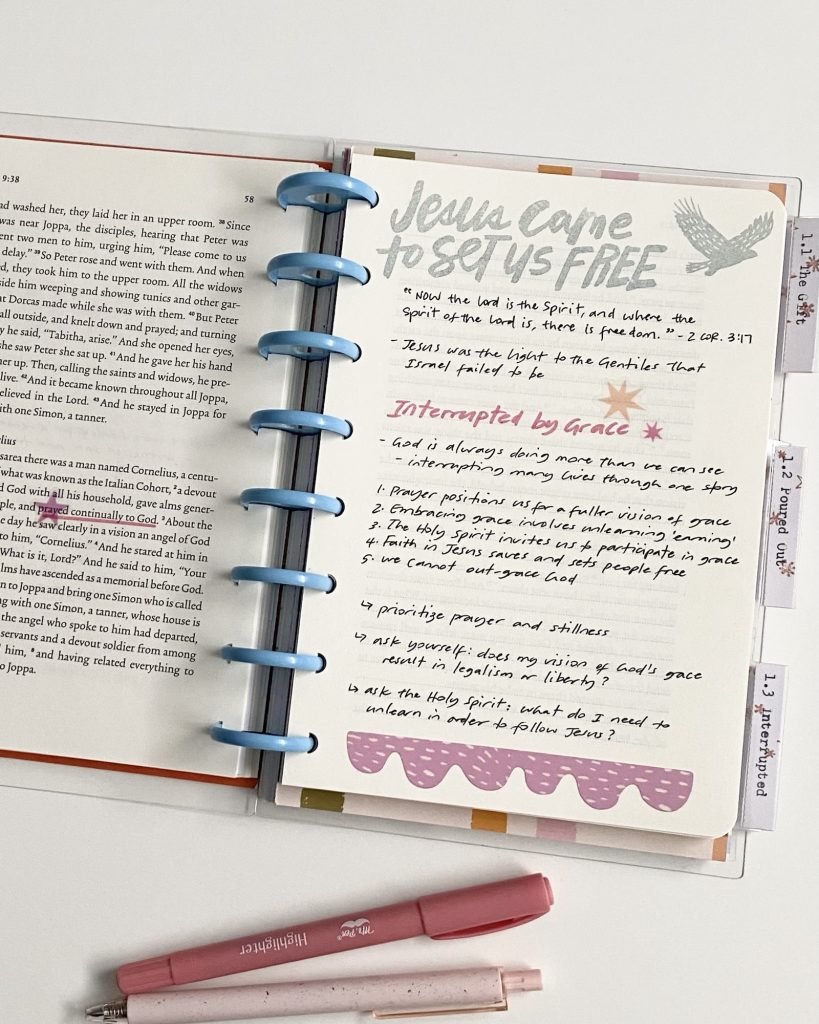 9:38
58
ad washed her, they laid her in an upper room. 38 Since
was near Joppa, the disciples, hearing that Peter was
ent two men to him, urging him, "Please come to us
delay." 39 So Peter rose and went with them. And when
d, they took him to the upper room. All the widows
side him weeping and showing tunics and other gar-
at Dorcas made while she was with them. 40 But Peter
all outside, and knelt down and prayed; and turning
y he said, "Tabitha, arise." And she opened her eyes,
she saw Peter she sat up. 41 And he gave her his hand
her up. Then, calling the saints and widows, he pre-
live. 42 And it became known throughout all Joppa,
elieved in the Lord. 43 And he stayed in Joppa for
ith one Simon, a tanner.
elius
sarea there was a man named Cornelius, a centu-
what was known as the Italian Cohort, 2 a devout
d God with all his household, gave alms gener-
ple, and prayed continually to God. 3 About the
e day he saw clearly in a vision an angel of God
to him, "Cornelius." 4 And he stared at him in
What is it, Lord?" And he said to him, "Your
lms have ascended as a memorial before God.
n to Joppa and bring one Simon who is called
g with one Simon, a tanner, whose house is
the angel who spoke to him had departed,
servants and a devout soldier from among
him, 8 and having related everything to
o Joppa.
Jesus came
to SET US FREE
"Now the Lord is the Spirit, and where the
Spirit of the Lord is, there is freedom." - 2 Cor. 3:17
- Jesus was the light to the Gentiles that
Israel failed to be
Interrupted by Grace
- God is always doing more than we can see
- interrupting many lives through one story
1. Prayer positions us for a fuller vision of grace
2. Embracing grace involves unlearning 'earning'
3. The Holy Spirit invites us to participate in grace
4. Faith in Jesus saves and sets people free
5. we cannot out-grace God
↳ prioritize prayer and stillness
↳ ask yourself: does my vision of God's grace
result in legalism or liberty?
↳ ask the Holy Spirit: what do I need to
unlearn in order to follow Jesus?
1.1 The Gift
1.2 Poured Out
1.3 Interrupted
Mr. Pen®
Highlighter